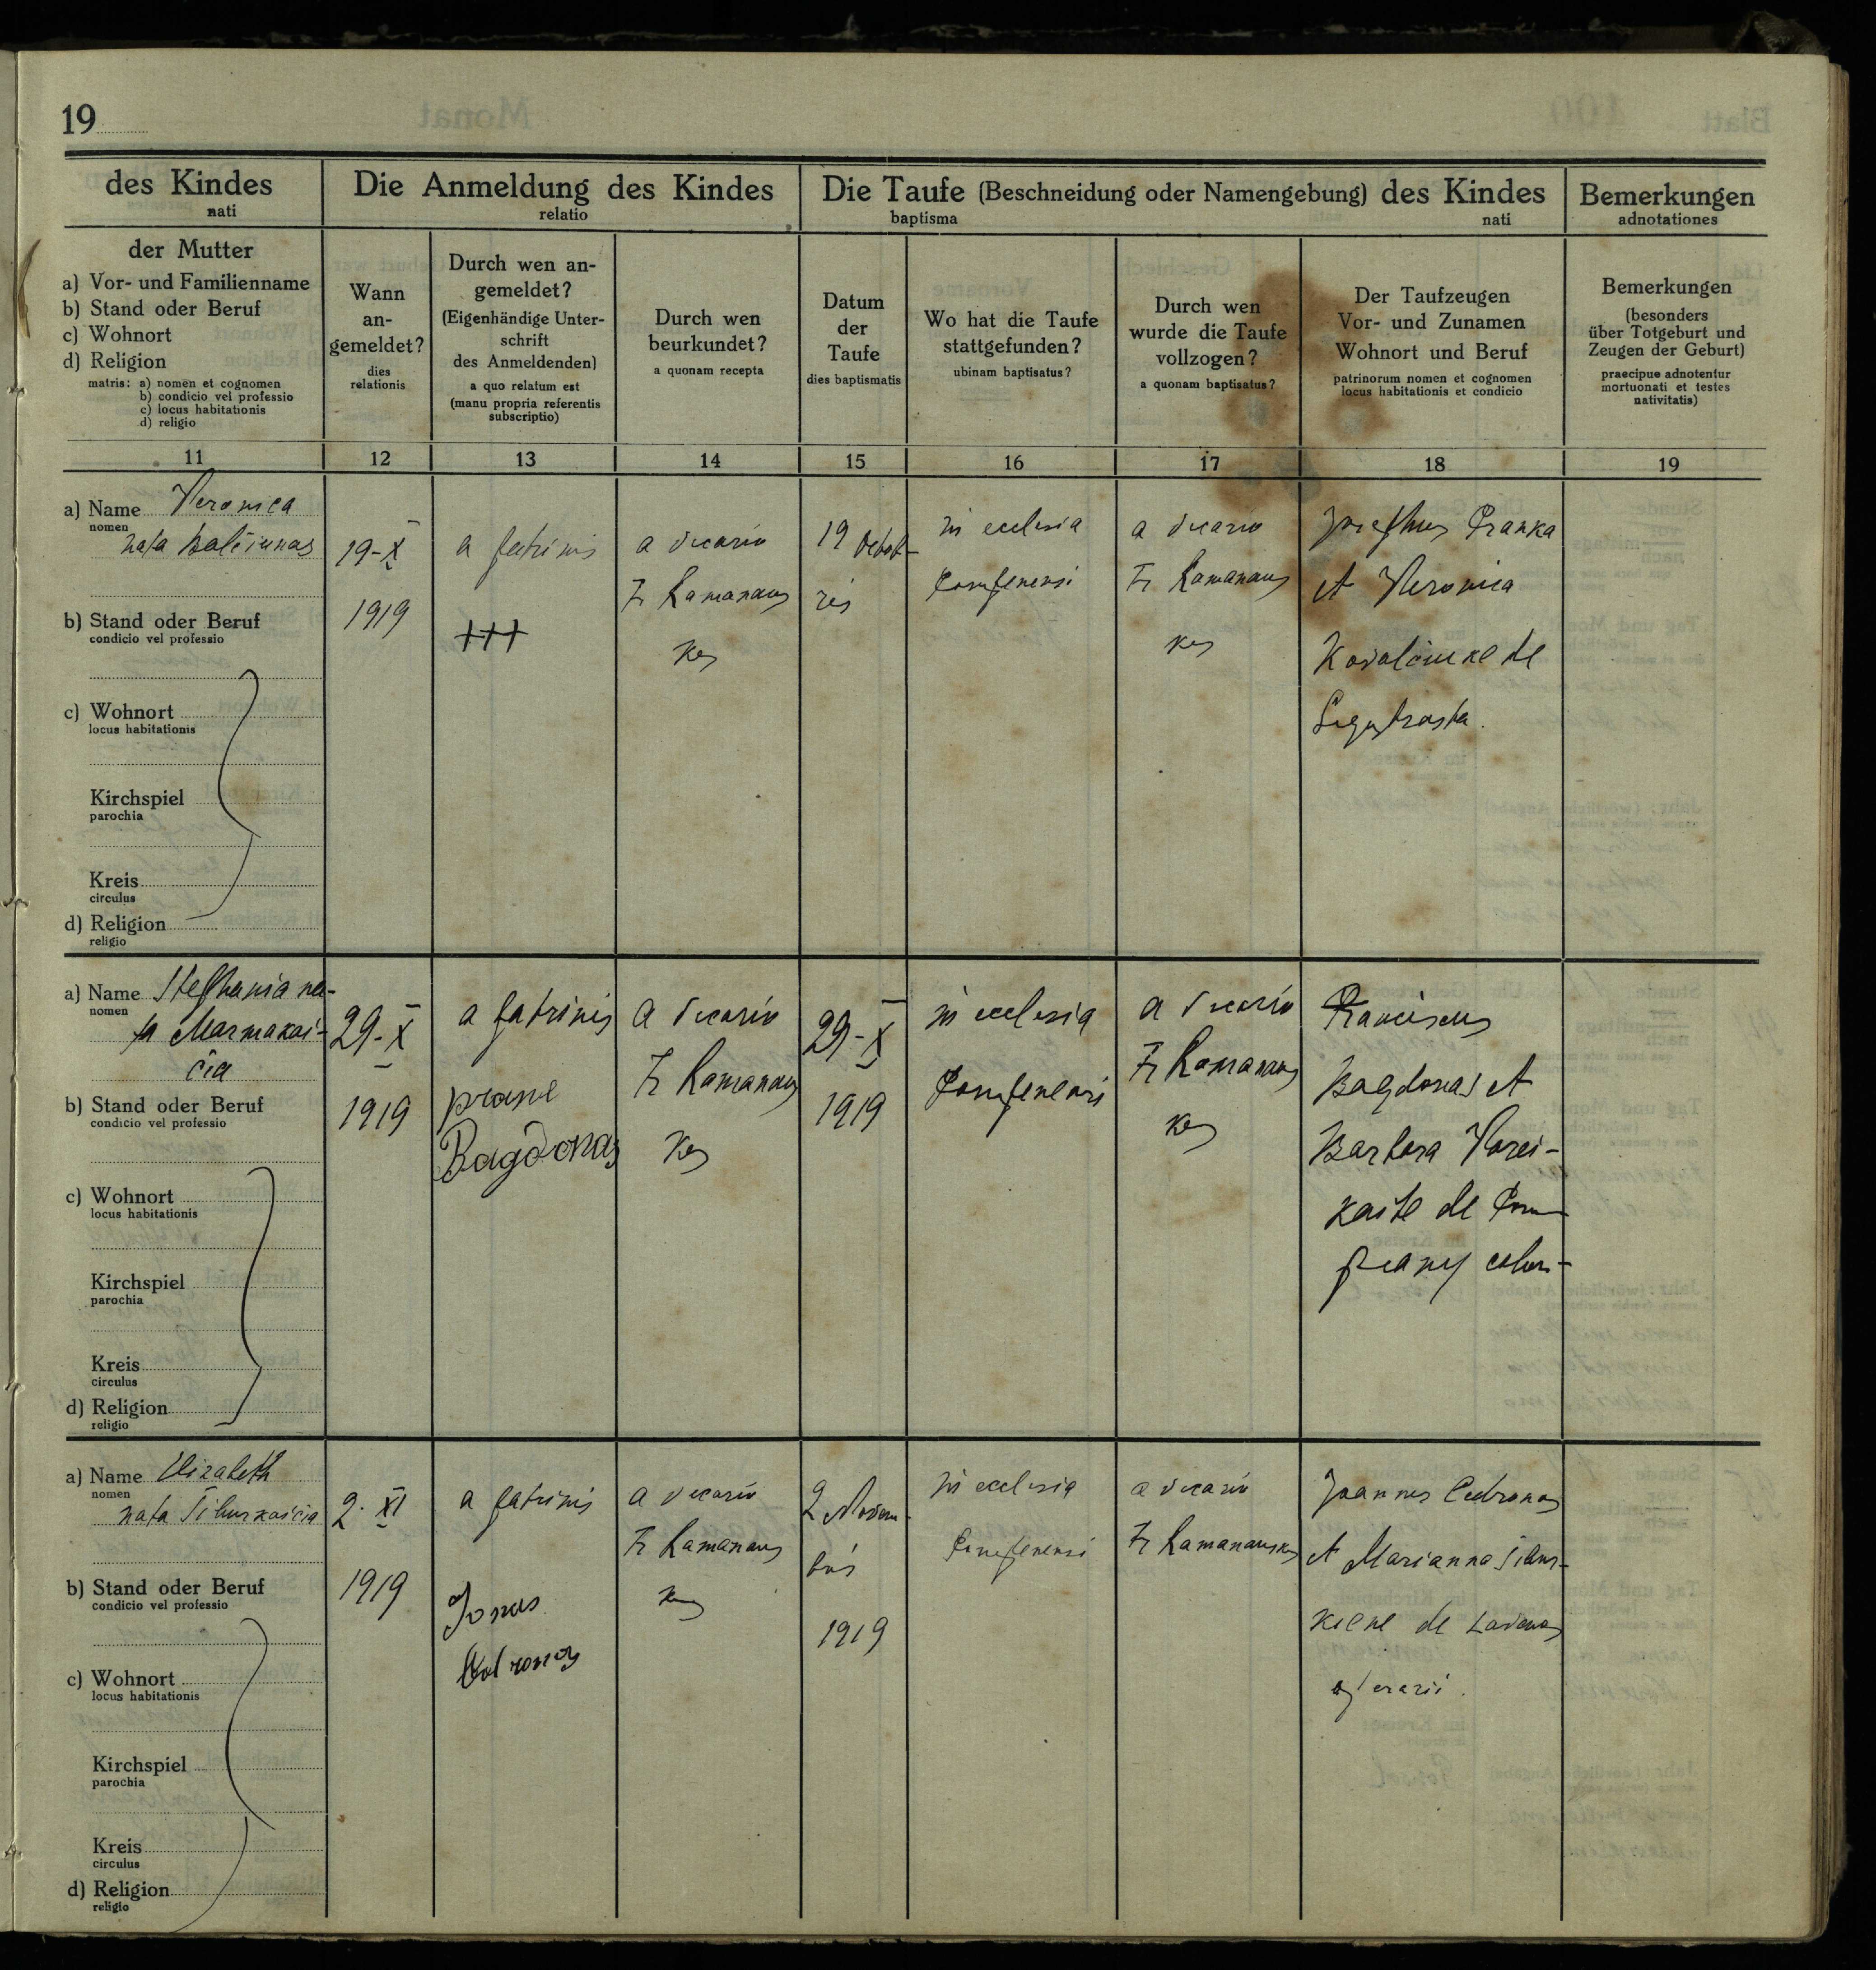 19
des Kindes
nati
Die Anmeldung des Kindes
relatio
Die Taufe (Beschneidung oder Namengebung) des Kindes
baptisma nati
Bemerkungen
adnotationes
der Mutter
a) Vor- und Familienname
b) Stand oder Beruf
c) Wohnort
d) Religion
matris: a) nomen et cognomen
b) condicio vel professio
c) locus habitationis
d) religio
Wann
an-
gemeldet?
dies
relationis
Durch wen an-
gemeldet?
(Eigenhändige Unter-
schrift
des Anmeldenden)
a quo relatum est
(manu propria referentis
subscriptio)
Durch wen
beurkundet?
a quonam recepta
Datum
der
Taufe
dies baptismatis
Wo hat die Taufe
stattgefunden?
ubinam baptisatus?
Durch wen
wurde die Taufe
vollzogen?
a quonam baptisatus?
Der Taufzeugen
Vor- und Zunamen
Wohnort und Beruf
patrinorum nomen et cognomen
locus habitationis et condicio
Bemerkungen
(besonders
über Totgeburt und
Zeugen der Geburt)
praecipue adnotentur
mortuonati et testes
nativitatis)
11 12 13 14 15 16 17 18 19
a) Name Veronica
nomen
nata Balčiunas
b) Stand oder Beruf
condicio vel professio
c) Wohnort
locus habitationis
Kirchspiel
parochia
Kreis
circulus
d) Religion
religio
19-X
1919
a patrinis
+++
a vicario
Fr Ramanaus
kas
19 Octob-
ris
in ecclesia
Pompenensi
a vicario
Fr Ramanaus
kas
Josephus Pranka
et Veronica
de
a) Name Stephania na-
nomen
ta Marmakai-
cia
b) Stand oder Beruf
condicio vel professio
c) Wohnort
locus habitationis
Kirchspiel
parochia
Kreis
circulus
d) Religion
religio
29-X
1919
a patrinis
prane
Bagdonas
a vicario
Fr Ramanaus
kas
29-X
1919
in ecclesia
Pompenensi
a vicario
Fr Ramanaus
kas
Franciscus
Bagdonas et
Barbora Vorei-
kaite de Pom
peany
a) Name Elizabeth
nomen
nata Šiburkaicia
b) Stand oder Beruf
condicio vel professio
c) Wohnort
locus habitationis
Kirchspiel
parochia
Kreis
circulus
d) Religion
religio
2. XI
1919
a patrinis
Jonas
a vicario
Fr Ramanaus
kas
2 Novem-
bris
1919
in ecclesia
Pompenensi
a vicario
Fr Ramanauskas
Joannes Cedronas
et Marianna Šibur-
kiene de
operarii.